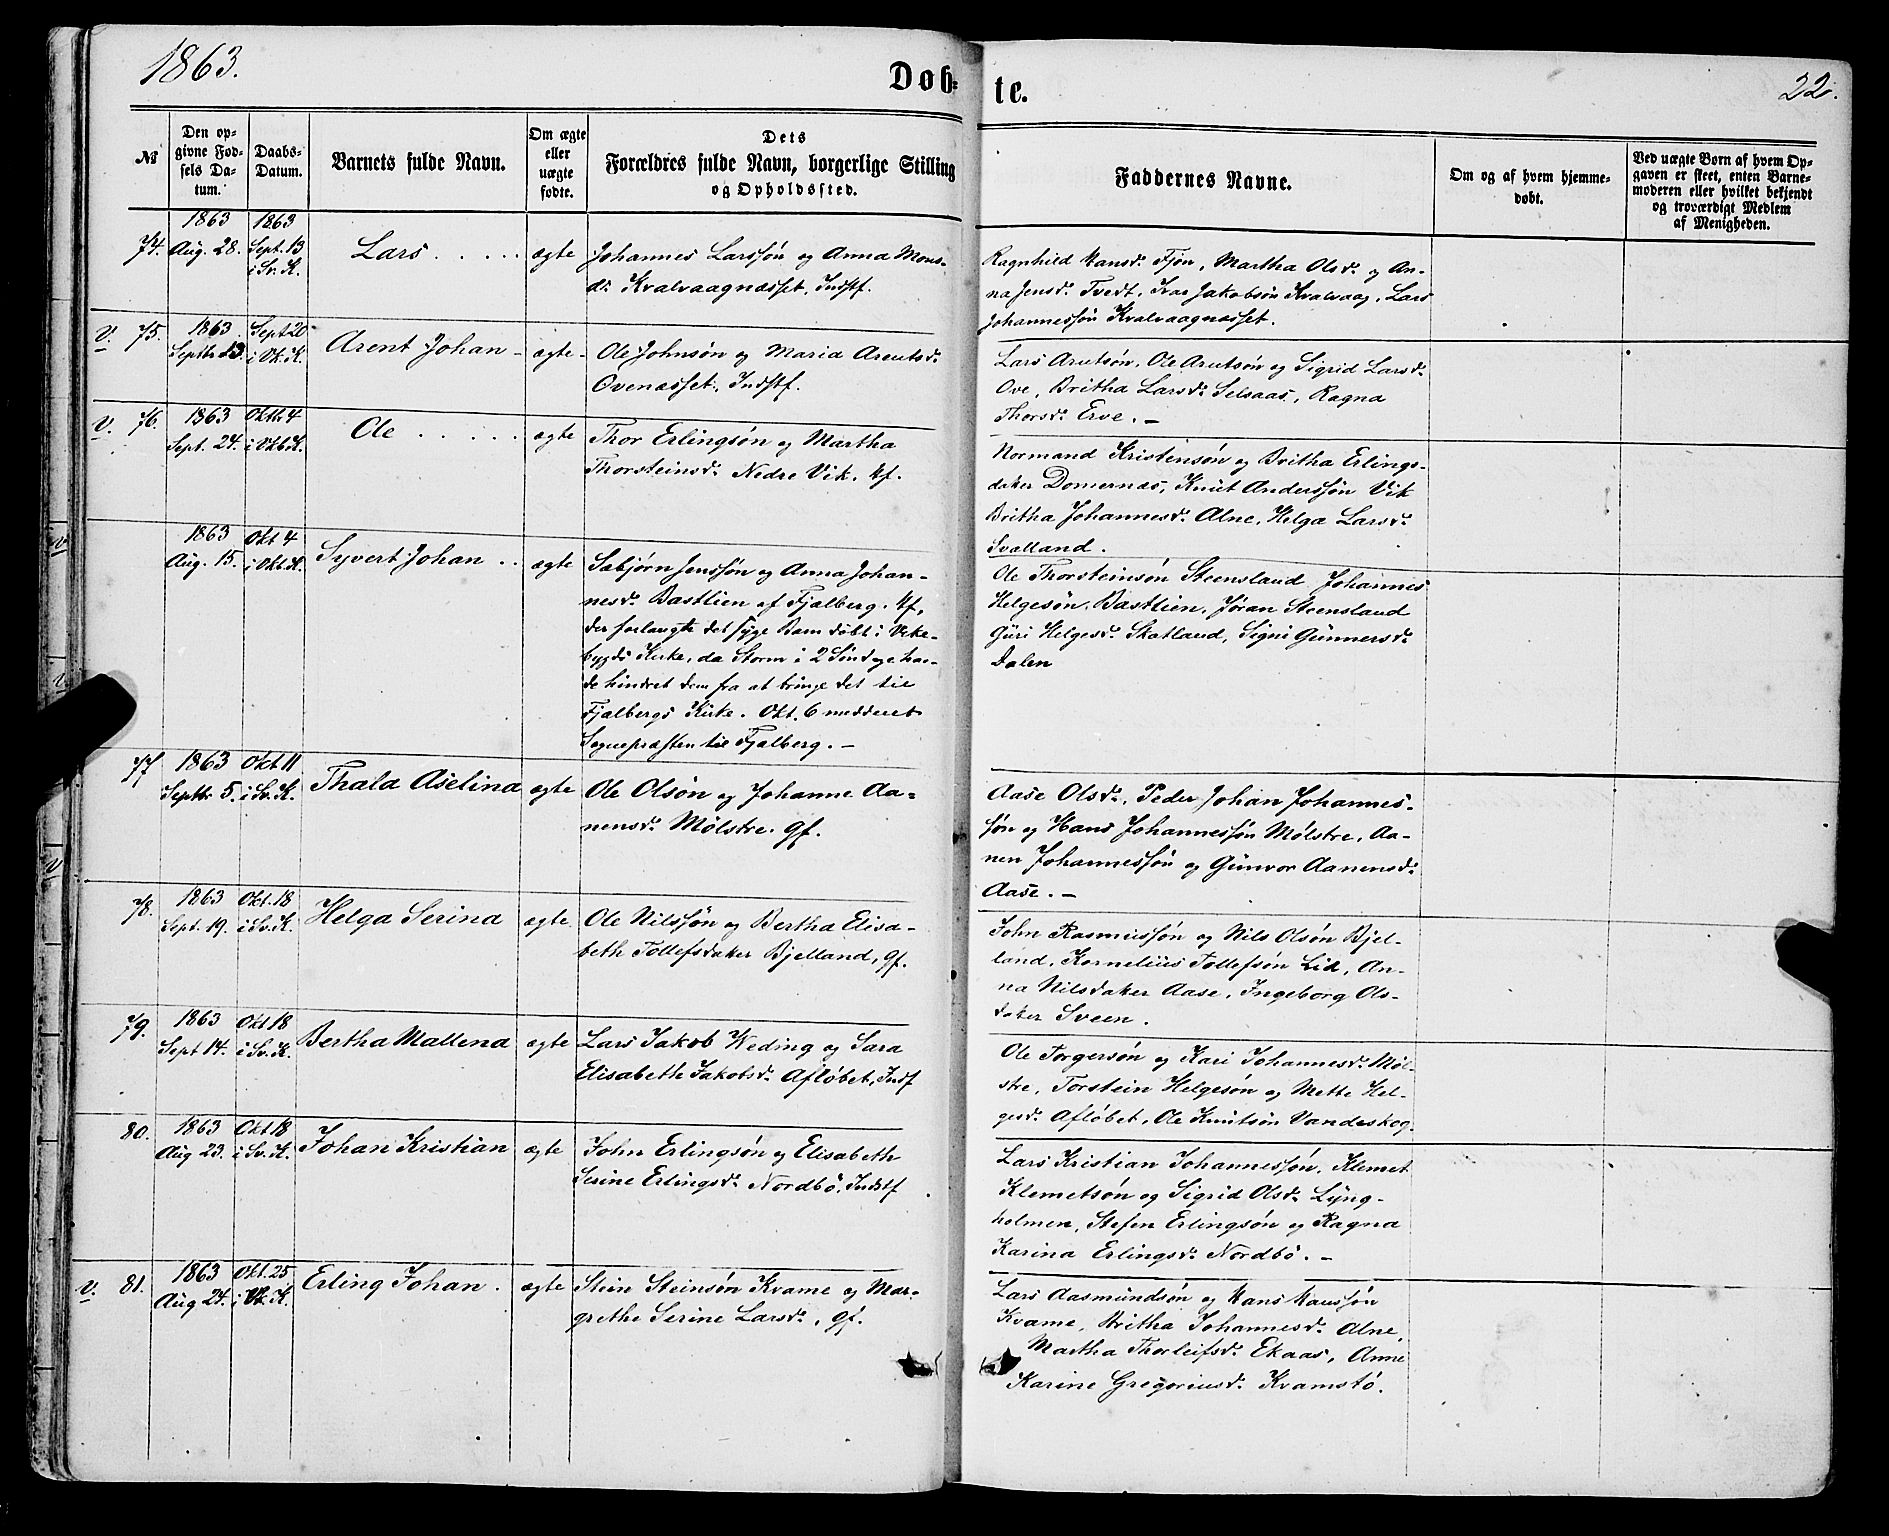 1863.
Døb-
te.
22.
№
Den op-
givne Fød-
sels Da-
tum.
Daabs-
Datum.
Barnets fulde Navn.
Om ægte
eller
uægte
fødte.
Dets
Forældres fulde Navn, borgerlige Stilling
og Opholdssted.
Faddernes Navne.
Om og af hvem hjemme-
døbt.
Ved uægte Børn af hvem Op-
gaven er skeet, enten Barne-
moderen eller hvilket bekjendt
og troværdigt Medlem
af Menigheden.
74.
1863
Aug. 28.
1863
Sept. 13
i Sv. K.
Lars . . . . .
ægte
Johannes Larssøn og Anna Mons-
dr. Kvalvaagnæsset, Indstf.
Ragnhild Hansdr. Fjøn, Martha Olsdr. og An-
na Jensdr. Tvedt, Ivar Jakobsøn Kvalvaag, Lars
Johannessøn Kvalvaagnæsset.
V. 75.
1863
Septbr 13.
Sept 20
i Vk. K.
Arent Johan -
ægte -
Ole Johnsøn og Maria Arentsdr.
Ovenæsset, Indstf.
Lars Arntsøn, Ole Arntsøn og Sigrid Larsdr.
Ove, Britha Larsdr. Selsaas, Ragna
Thorsdr. Erve. -
V. 76.
1863
Sept. 24.
Oktb. 4
i Vkb. K.
Ole . . . . .
ægte
Thor Erlingsøn og Martha
Thorsteinsdr. Nedre Vik. Hf.
Normand Kristensøn og Britha Erlings-
daker Dommernæs, Knut Anderssøn Vik
Britha Johannesdr. Alne, Helga Larsdr.
Svalland.
1863
Aug. 15.
Okt 4
i Vkb. K.
Syvert Johan . .
ægte
Sabjørn Jenssøn og Anna Johan-
nesdr. Bastlien af Fjelberg. Hf.
der forlangte det syge Barn døbt i Vike-
bygds Kirke, da Storm i 2 Søndage hav-
de hindret dem fra at bringe det til
Fjelbergs Kirke. Okt. 6 meddeelt
Sognepræsten til Fjelberg. -
Ole Thorsteinsøn Steensland Johannes
Helgesøn, Bastlien, Jøran Steensland
Guri Helgesdr. Skatland, Signi Gunnersdr.
Dalen
77
1863
Septbr 5.
Okt 11
i Sv. K.
Thala Aselina
ægte
Ole Olsøn og Johanne Aa-
nensdr. Mølstre. Gf.
Aase Olsdr., Peder Johan Johannes-
søn og Hans Johannessøn Mølstre, Aa-
nen Johannessøn og Gunvor Aanensdr.
Aase. -
78.
1863
Sept. 19.
Okt. 18
i Sv. K.
Helga Serina
ægte
Ole Nilssøn og Bertha Elisa-
beth Tollefsdaker Bjelland, Gf.
John Rasmussøn og Nils Olsøn Bjel-
land, Kornelius Tollefsøn Lid, An-
na Nilsdaker Aase, Ingeborg Ols-
daker Sveen.
79.
1863
Sept 14.
Okt 18
i Sv. K.
Bertha Mallena
ægte
Lars Jakob Weding og Sara
Elisabeth Jakobsdr. Afløbet, Indf
Ole Torgersøn og Kari Johannesdr. Møl-
stre, Torstein Helgesøn og Mette Hel-
gesdr. Afløbet, Ole Knutsøn Vandeskog.
80.
1863
Aug 23.
Okt 18
i Sv. K.
Johan Kristian
ægte
John Erlingsøn og Elisabeth
Serine Erlingsdr. Nordbø, Indstf
Lars Kristian Johannessøn, Klemet
Klemetsøn og Sigrid Olsdr. Lyng-
holmen, Stefen Erlingsøn og Ragna
Karina Erlingsdr. Nordbø. -
V. 81.
1863
Aug 24.
Okt. 25
i Vk. K.
Erling Johan .
ægte
Stein Steinsøn Kvame og Mar-
grethe Serine Larsdr., Gf.
Lars Aasmundsøn og Hans Hanssøn
Kvame, Britha Johannesdr. Alne,
Martha Thorleifsdr. Ekaas, Anne
Karine Gregoriusdr. Kvamstø.